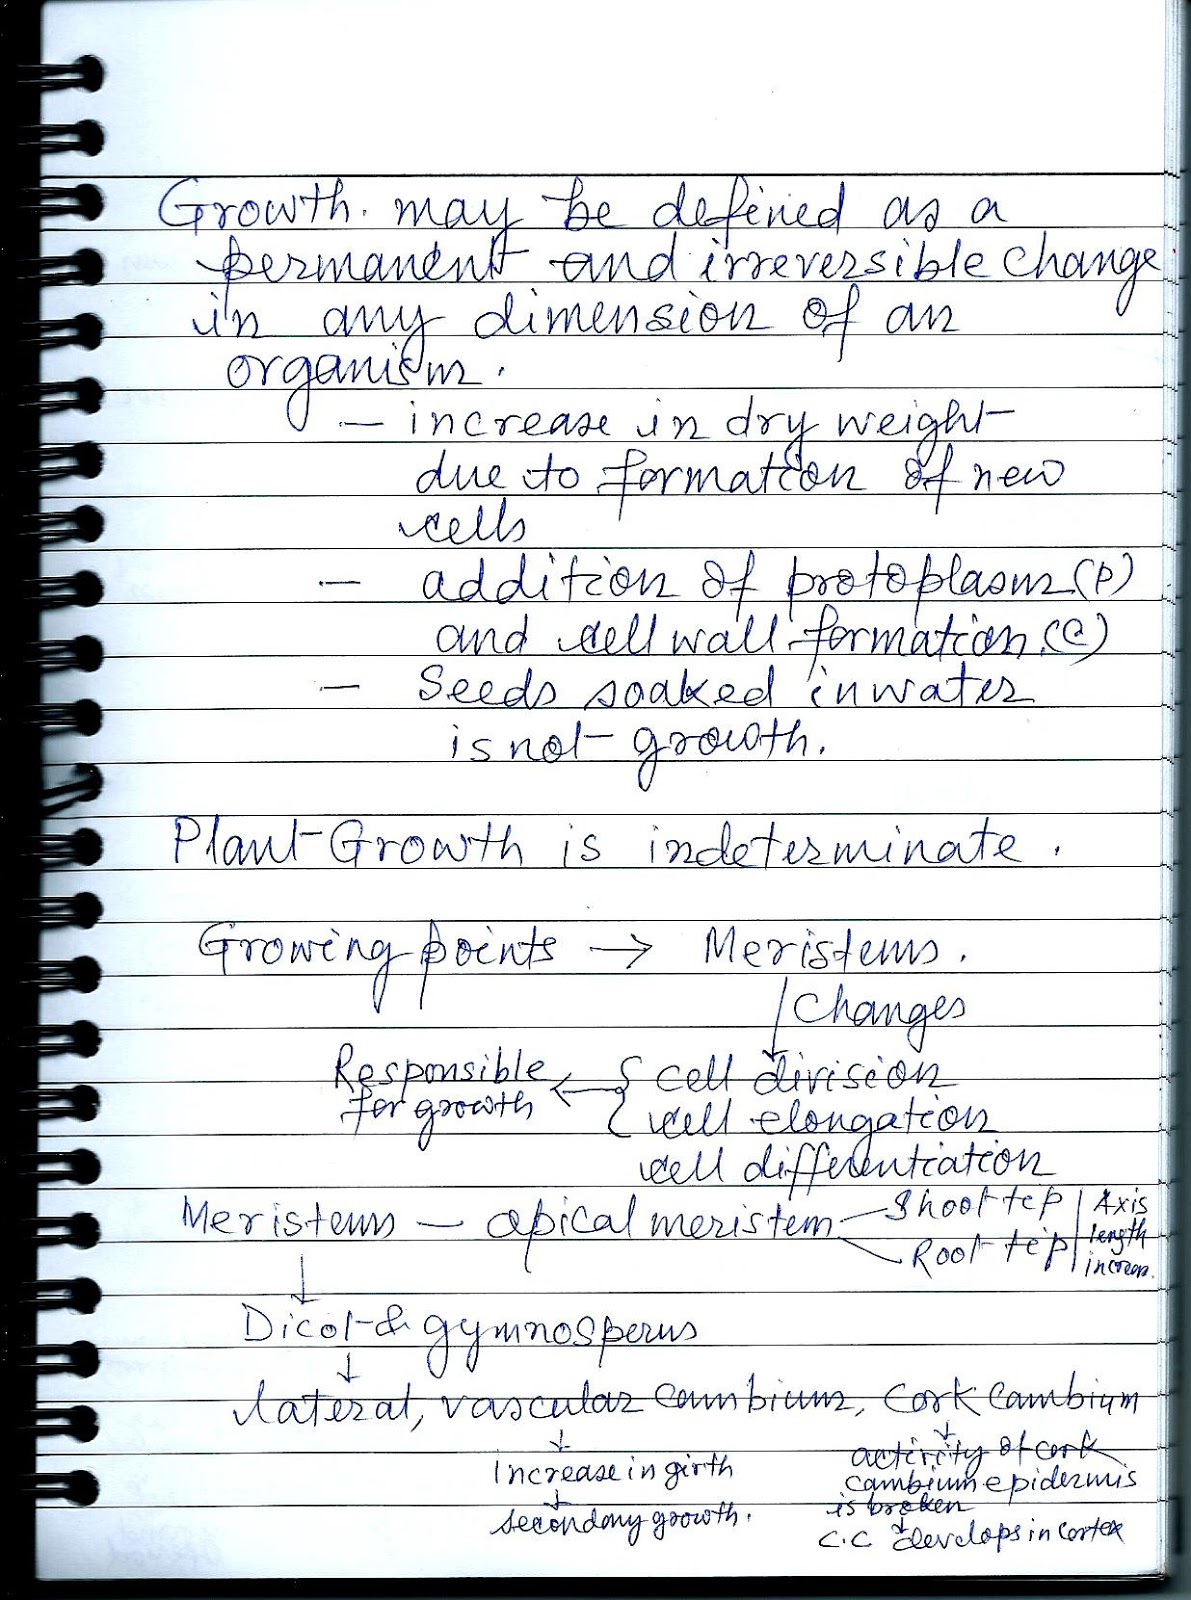 Growth. may be defined as a
permanent and irreversible change
in any dimension of an
organism.
– increase in dry weight
due to formation of new
cells
– addition of protoplasm (P)
and cell wall formation. (C)
– Seeds soaked in water
is not growth.
Plant Growth is indeterminate.
Growing points → Meristems.
Changes
Responsible ← { cell division
for growth cell elongation
cell differentiation
Meristems – apical meristem – Shoot tip | Axis
Root tip | length
increas.
↓
Dicot & gymnosperms
↓
lateral, vascular cambium, cork cambium
↓ ↓
increase in girth activity of cork
↓ cambium epidermis
secondary growth. is broken
↓
C.C develops in cortex